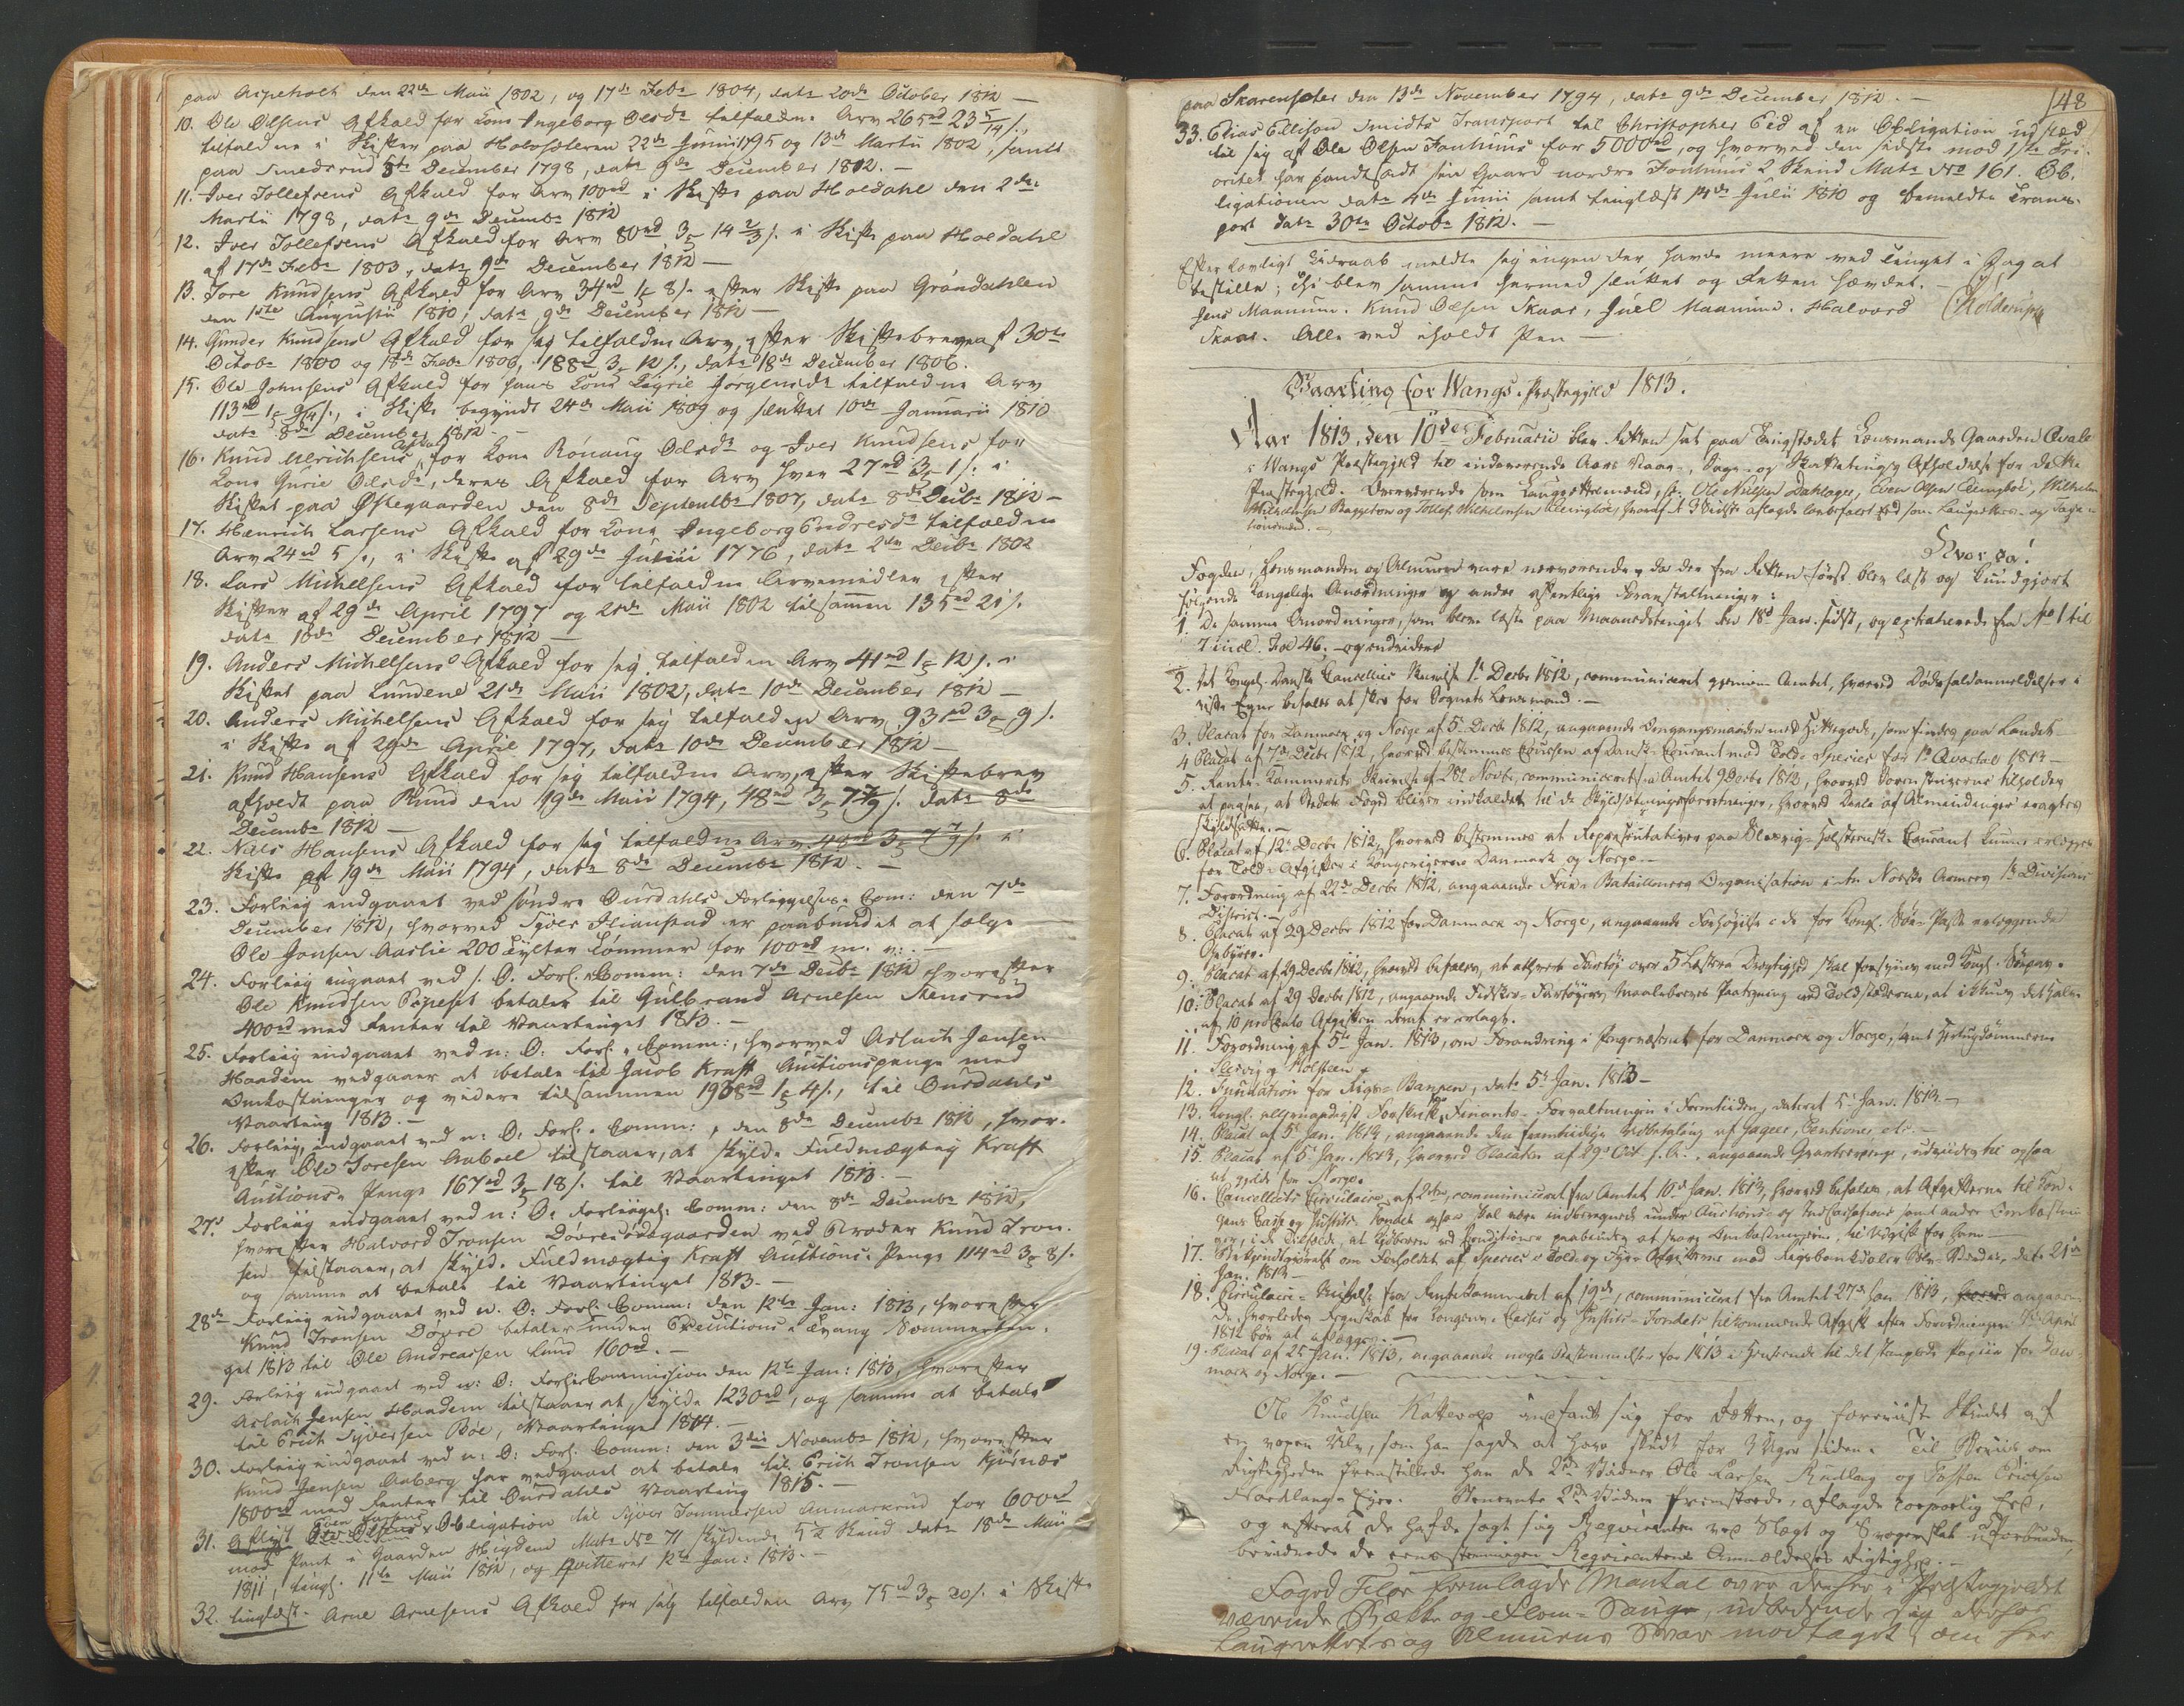 paa Aspeholt den 22de Maii 1802, og 17de Febr 1804, dat 20de October 1812 —
10. Ole Olsens Afkald for Kone Ingeborg Olsd tilfalden Arv 265rd 23 5/14 s.,
tilfalden i Skifter paa Holvsteren 22de Junii 1795 og 13de Martii 1802, samt
paa Smedsrud 5te December 1798, dat 9de December 1812. —
11. Iver Tollefsens Afkald for Arv 100rd i Skifte paa Hoedahl den 2de
Martii 1798, dat 9de Decembr 1812
12. Iver Tollefsens Afkald for Arv 80rd 3 14 2/3 s. i Skifte paa Hoedahl
af 17de Febr 1803, dat 9de December 1812 —
13. Tore Knudsens Afkald for Arv 34rd 1 8 s. efter Skifte paa Gröndahlen
den 1ste Augustii 1810, dat 9de December 1812 —
14. Gunder Knudsens Afkald for sig tilfalden Arv, efter Skiftebreve af 30te
Octobr 1800 og 18de Febr 1806, 188rd 3 12 s., dat 18de December 1806.
15. Ole Johnsens Afkald for hans Kone Sigrie Jorgensd tilfalden Arv
113rd 1 s., i Skifte begyndt 24de Maii 1809 og sluttet 10de Januarii 1810
dat 8de December 1812. —
16. Knud Ulrichsens Afkald for Kone Rönaug Olsd og Iver Knudsens for
Kone Gurie Olsd, deres Afkald for Arv hver 27rd 3 1 s. i
Skiftet paa Östegaarden den 8de Septembr 1807, dat 8de Decbr 1812 —
17. Henrich Larsens Afkald for Kone Ingeborg Endresd tilfalden
Arv 24rd 5 s., i Skifte af 29de Junii 1776, dat 2den Decbr 1802
18. Lars Michelsens Afkald for tilfaldne Arvemidler efter
Skifter af 29de April 1797 og 21de Maii 1802 tilsammen 135rd 21 s.
dat 10de December 1812 —
19. Anders Michelsens Afkald for sig tilfalden Arv 41rd 1 12 s. i
Skiftet paa Lundene 21de Maii 1802, dat 10de December 1812 —
20. Anders Michelsens Afkald for sig tilfalden Arv 93rd 3 9 s.
i Skifte af 29de April 1797, dat 10de December 1812 —
21. Knud Hansens Afkald for sig tilfalden Arv, efter Skiftebrev
afholdt paa Rund den 19de Maii 1794, 48rd 3 7 7/9 s. dat 8de
Decembr 1812 —
22. Niels Hansens Afkald for sig tilfalden Arv 48rd 3 7 7/9 s. i
Skifte af 19de Maii 1794, dat 8de Decembr 1812. —
23. Forliig indgaaet ved söndre Ourdahls Forligelses-Com: den 7de
December 1812, hvorved Syver Ilianstad er paabundet at sælge
Ole Jonsen Aaslie 200 Tylter Tömmer for 100rd m. v: —
24. Forliig indgaaet ved s. O. Forl. Comm: den 7de Decbr 1812 hvorefter
Ole Knudsen betaler til Gulbrand Arnesen Stensrud
400rd med Renter til Vaartinget 1813. —
25. Forliig indgaaet ved n: O: Forl. Comm:, hvorved Aslach Jensen
Haadem vedgaaer at betale til Jacob Krafft Auctionspenge med
Omkostninger og videre tilsammen 1938rd 1 4 s., til Ourdahls
Vaarting 1813. —
26. Forliig, indgaaet ved n: O: Forl. Comm:, den 8de Decembr 1812, hvor-
efter Ole Toresen Aaboel tilstaaer, at skylde Fuldmægtig Krafft
Auctions-Penge 167rd 3 18 s. til Vaartinget 1813. —
27. Forliig indgaaet ved n: O: Forligelses Comm: den 8de Decembr 1812,
hvorefter Halvord Tronsen ved Broder Knud Tron-
sen tilstaaer, at skylde Fuldmægtig Krafft Auctions-Penge 114rd 3 8 s.
og samme at betale til Vaartinget 1813. —
28de Forliig indgaaet ved n. O: Forl. Comm: den 12te Jan: 1813, hvorefter
Knud Tronsen Dövre betaler under Executions-Tvang Sommertin-
get 1813 til Ole Andreassen Lund 160rd. —
29. Forliig indgaaet ved n: O: Forl. Commission den 12te Jan: 1813, hvorefter
Aslach Jensen Haadem tilstaaer at skylde 1230rd, og samme at betale
til Erich Syversen Böe, Vaartinget 1814. —
30. Forliig indgaaet ved n: O: Forl. Comm: den 3die Novembr 1812, hvorefter
Knud Jensen Aaberg har vedgaaet at betale til Erich Tronsen Kjösnæs
1800rd med Renter til Ourdahls Vaarting 1815. —
31. Aflyst Obligation til Syver Tommersen Aumarksrud for 600rd
mod Pant i Gaarden Higdem Mat No 71 skyldende 1/2 Skind dat 18de Maii
1811, tingl. 11te Maii 1812, og qvitteret 12te Jan: 1813. —
32. tinglæst. Arne Arnesens Afkald for sig tilfalden Arv 75rd 3 20 s. i Skifte
148
paa Skarensfeter den 13de November 1794, dat 9de December 1812. —
33. Elias Ellison Smidts Transport til Christopher Eid af en Obligation udsted
til sig af Ole Olsen Fonhuus for 5000rd, og hvorved den sidste mod 1ste Pri-
oritet har pandtsadt sin Gaard nordre Fonhuus 2 Skind Mat No 161. Ob-
ligationen dat 4de Junii samt tinglæst 14de Julii 1810 og bemeldte Trans-
port dat 30te Octobr 1812. —
Efter lovligt Udraab meldte sig ingen der havde meere ved Tinget i Dag at
bestille; thi blev samme hermed sluttet og Retten hævdet. —
Jens Maanum. Knud Olsen Skaar, Juel Maanum. Halvord
Skaar. Alle ved iholdt Pen —
Vaarting for Wangs Præstegjeld 1813.
Aar 1813, den 10de Februarii blev Retten sat paa Tingstædet Lensmands Gaarden Qvale
i Wangs Præstegjeld til indeværende Aars Vaar-, Sage- og Skattetings Afholdelse for dette
Præstegjeld. Overværende som Laugrettesmænd, Ole Nielsen Dahlager, Even Olsen
Hvorda!
Fogden, Lensmanden og Almuen vare nærværende, da der fra Retten först blev læst og kundgjort
fölgende Kongelige Anordninger og andre offentlige Foranstaltninger:
1. De samme Anordninger, som bleve læste paa Maanedstinget den 18de Jan. sidst, og extraherede fra No 1 til
7 incl. Fol 46. — og endvidere
2. Det Kongel. Danske Cancellies Skrivelse 1 Decbr 1812, communiceret gjennem Amtet, hvorved Dödsfaldanmeldelser i
visse Egne befales at skee for Sognets Lensmænd. —
3. Placat for Danmark og Norge af 5 Decbr 1812, angaaende Omgangsmaaden med Hittegods, som findes paa Landet —
4. Placat af 7de Decbr 1812, hvorved bestemmes Coursen af Dansk Courant mod Told-Species for 1ste Qvartal 1813 —
5. Rente-Kammerets Skrivelse af 28de Novbr, communiceret fra Amtet 9 Decbr 1812, hvorved Sorenskriverne tilholdes
at paasee, at Stedets Foged bliver indkaldet til de Skyldsætningsforretninger, hvorved Deele af Almindinger ansættes
6. Placat af 12te Decbr 1812, hvorved bestemmes at Repræsentativer paa Slesvig-Holsteensk Courant kunne erlægges
for Told-Afgifter i Kongerigerne Danmark og Norge —
7. Forordning af 22de Decbr 1812, angaaende Bataillonens Organisation i den Norske Armees 1ste Divisions
District. —
8. Placat af 29 Decbr 1812 for Danmark og Norge, angaaende Forhöielse i de for Kongl. Söe-Passe erlæggende
Gebyrer. —
9. Placat af 29 Decbr 1812, hvorved befales, at ethvert Fartöj over 5 Læsters Drægtighed skal forsynes med Kongl. Söepas. —
10. Placat af 29 Decbr 1812, angaaende Fiskere-Fartöyers Maalebreves Paategning ved Toldstæderne, at ikkun det halve
af 10 pro Cento Afgiften deraf er erlagt.
11. Forordning af 5te Jan. 1813, om Forandring i Pengevæsenet for Danmark og Norge, samt Hertugdömmerne
Slesvig og Holsteen
12. Fundation for Rigs-Banken, dat 5te Jan. 1813 —
13. Kongl. allernaadigst Forskrift for Finants-Forvaltningen i Fremtiden, dateret 5 Jan. 1813. —
14. Placat af 5te Jan. 1813, angaaende den fremtidige Udbetaling af Gager, Pensioner, etc. —
15. Placat af 5 Jan. 1813, hvorved Placaten af 29de Oct. f. A., angaaende Qvarterpenge, udvides til ogsaa
at gjelde for Norge.
16. Cancellies Circulaire af 2den, communiceret fra Amtet 10de Jan. 1813, hvorved befales, at Afgifterne til Kon-
gens Casse og Justits-Fondet ogsaa skal være indberegnede under Auctions-
17. Bekjendtgjörelse om Forholdet af Species i Told- og Afgifterne mod Rigsbankdaler Sedler, dat 21de
Jan. 1813 —
18. Circulaire-Skrivelse fra Rentekammeret af 19de, communiceret fra Amtet 27de Jan 1813, angaaen-
de, hvorledes Regnskab for Kongens-Casses og Justits-Fondets tilkommende Afgift efter Forordningen
1812 bör at aflægges. —
19. Placat af 25 Jan. 1813, angaaende nogle Bestemmelser for 1813 i Henseende til det stemplede Papiir for Dan-
mark og Norge. —
Ole Knudsen indfandt sig for Retten, og foreviiste Skindet af
en voxen Ulv, som han sagde at have skudt for 3 Uger siden. Til Beviis om
Rigtigheden fremstillede han de 2de Vidner Ole Larsen og Torsten Erichsen
2de Vidner fremstode, aflagde corporlig Eed,
og efterat de havde sagt sig Reqvirenten ved Slægt og Svogerskab uforbunden,
bevidnede de eensstemmigen Reqvirentens Anmeldelses Rigtighed. —
Foged fremlagde Mantal over denne i Præstegjeldet
værende Bække og Flom-Sauge, udbedende sig derfor
Laugrettets og Almuens Svar modtaget, om her